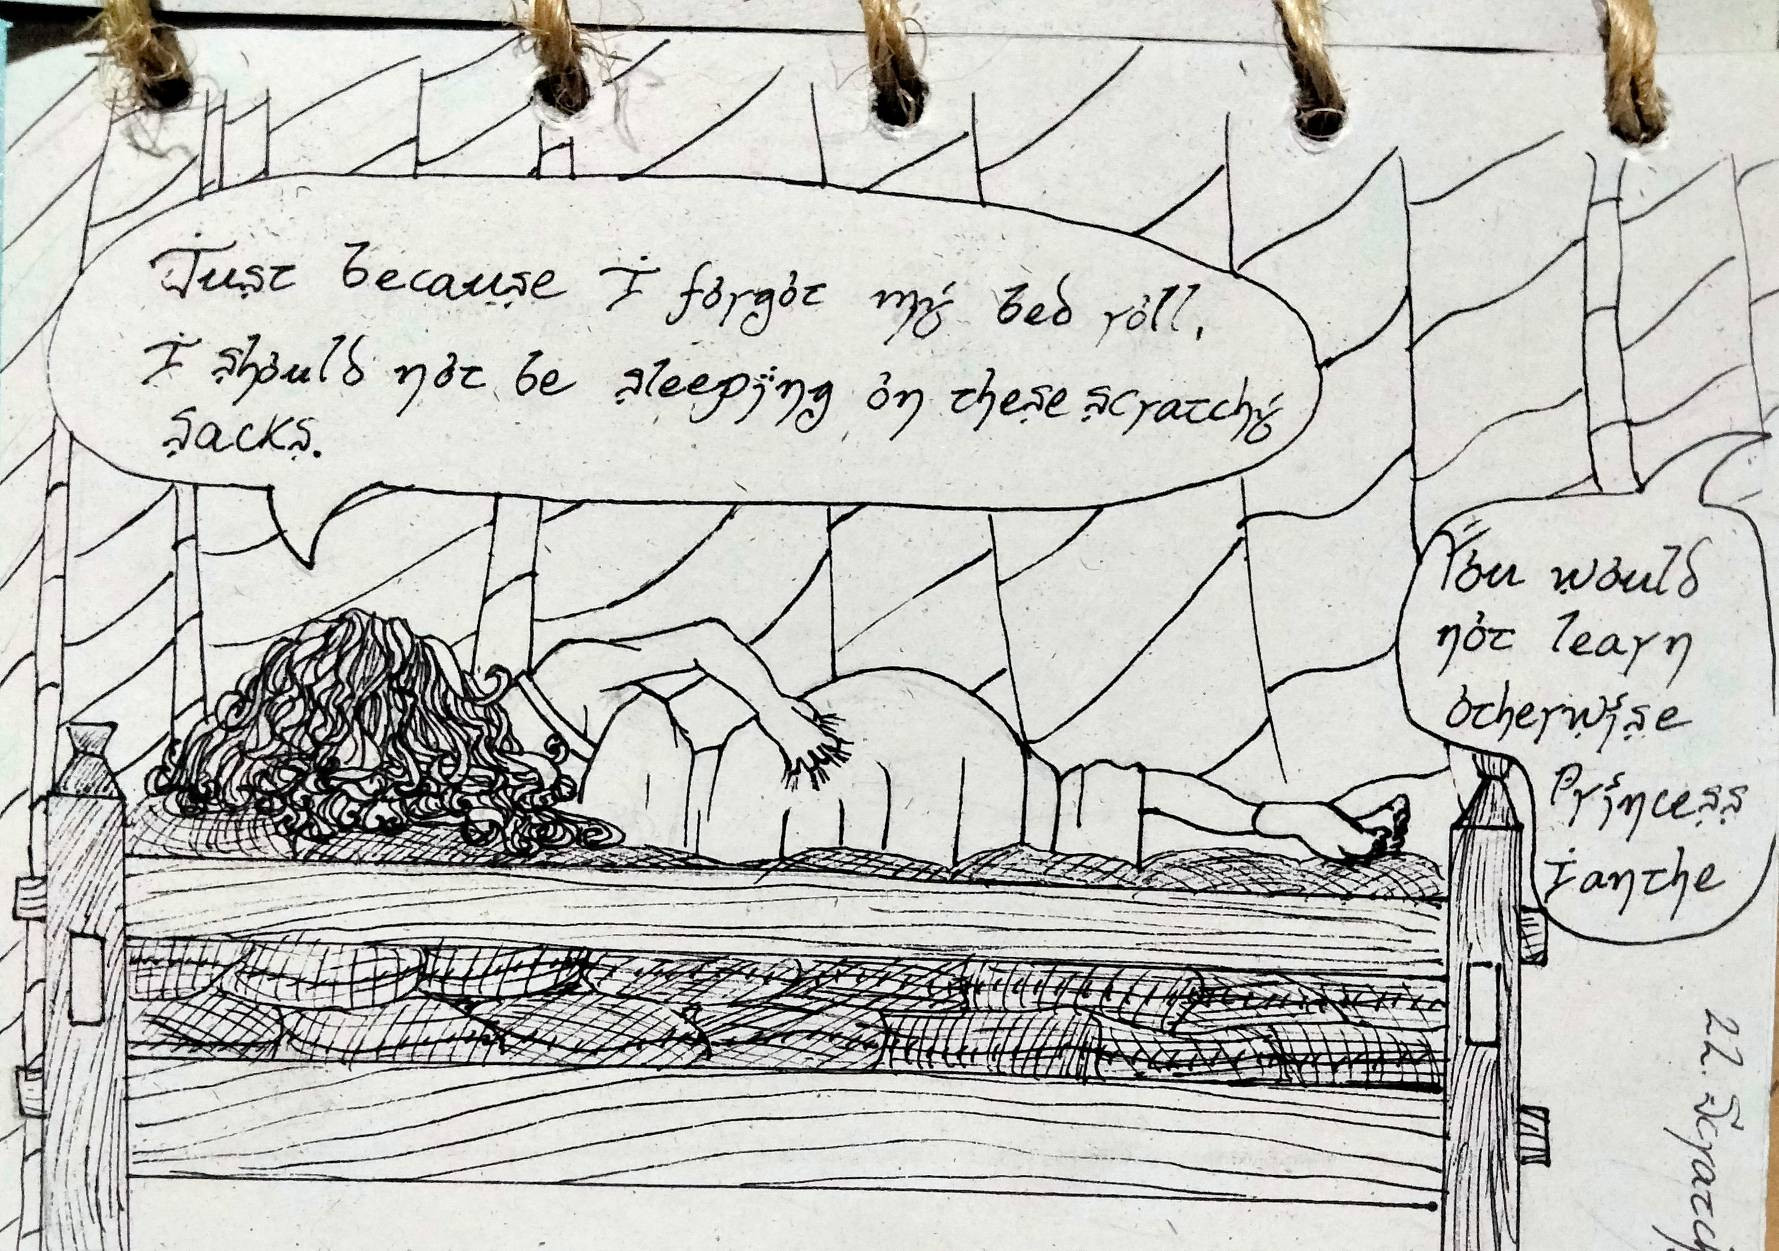 Just because I forgot my bed roll,
I should not be sleeping on these scratchy
sacks.
You would
not learn
otherwise
Princess
Ianthe
22. Scratch